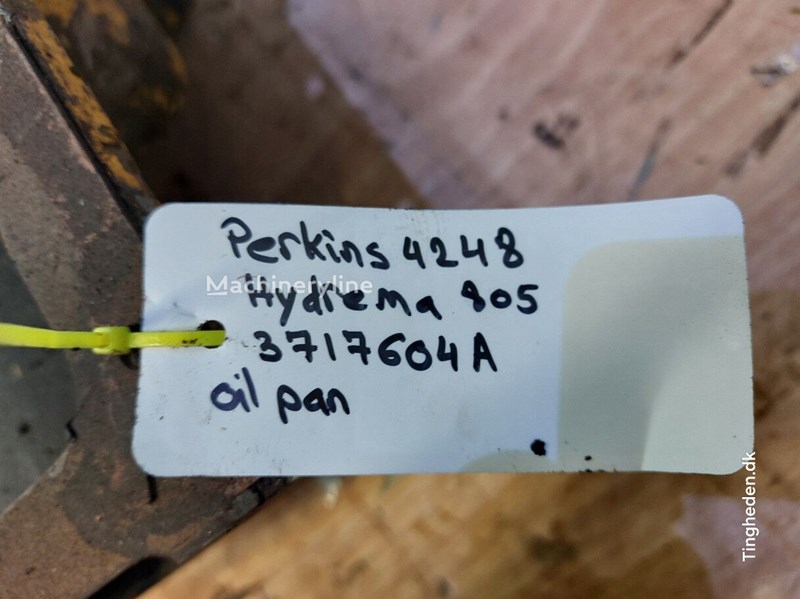 Perkins 4248
Machineryline
Hydrema 805
3717604A
oil pan
Tingheden.dk